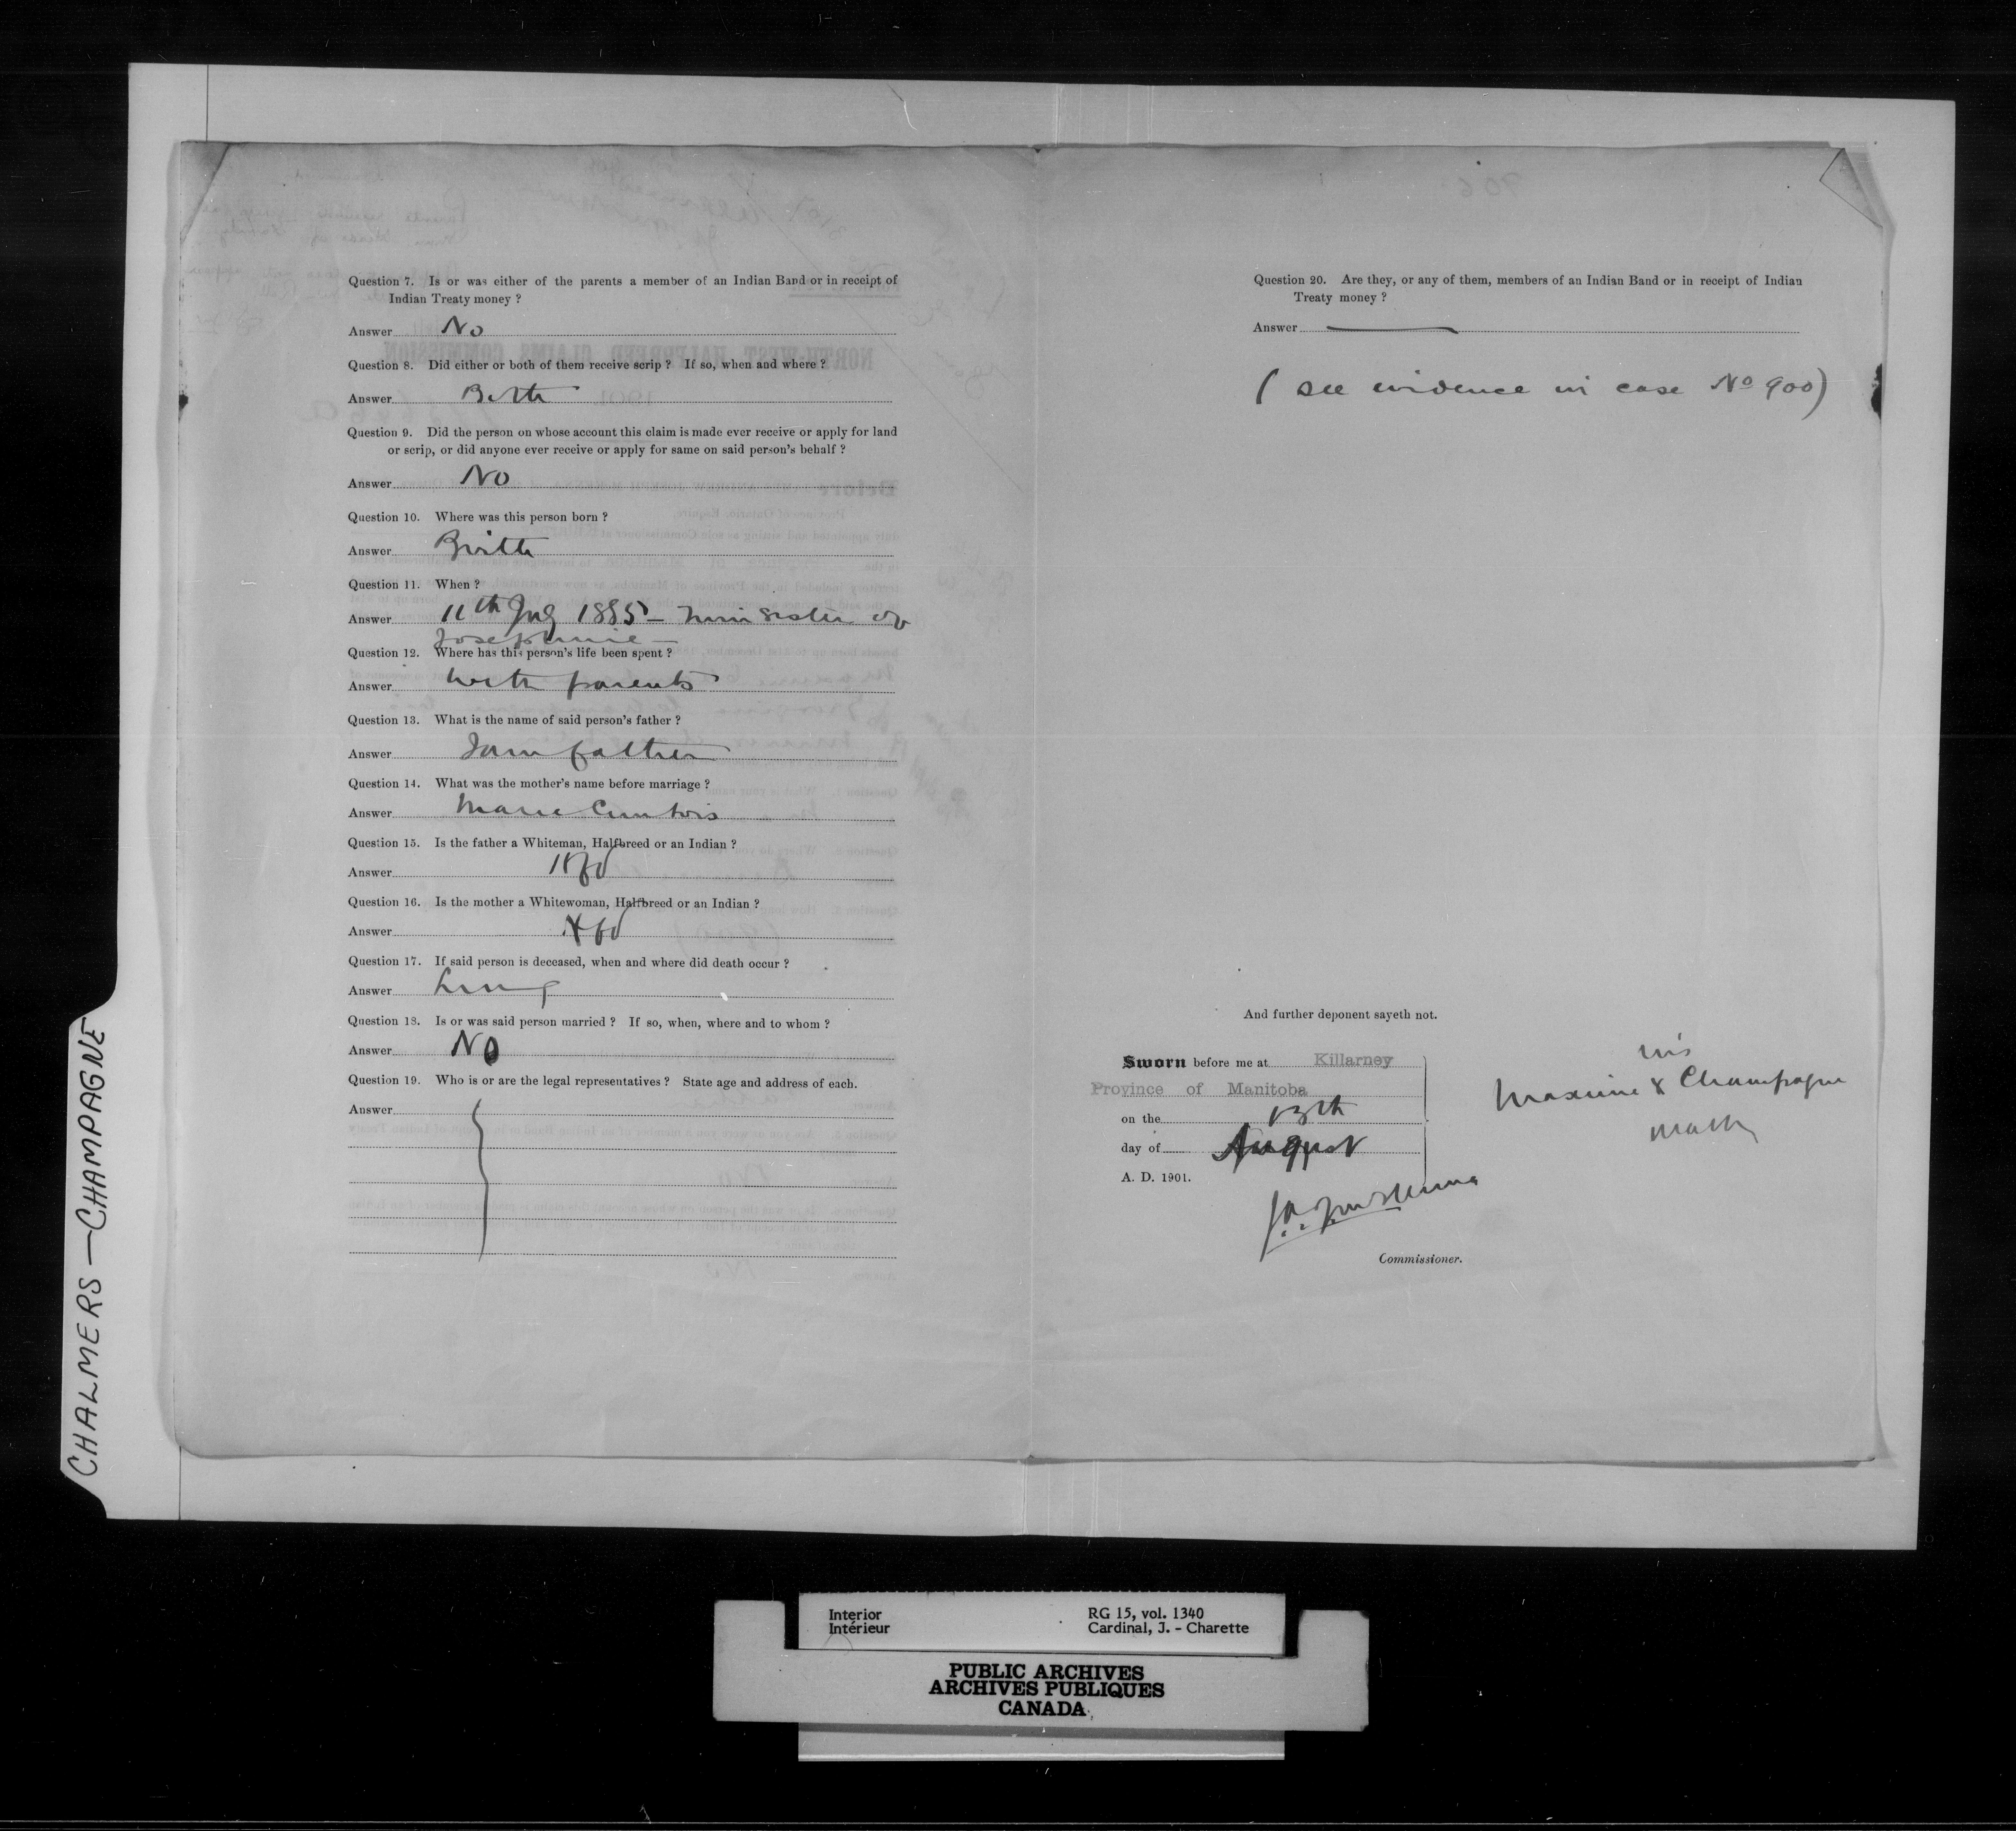 Question 7. Is or was either of the parents a member of an Indian Band or in receipt of
Indian Treaty money ?
Answer No
Question 8. Did either or both of them receive scrip ? If so, when and where ?
Answer Both
Question 9. Did the person on whose account this claim is made ever receive or apply for land
or scrip, or did anyone ever receive or apply for same on said person's behalf ?
Answer No
Question 10. Where was this person born ?
Answer
Question 11. When ?
Answer 11th 1885 – twin sister of
Josephine –
Question 12. Where has this person's life been spent ?
Answer with parents
Question 13. What is the name of said person's father ?
Answer I am father
Question 14. What was the mother's name before marriage ?
Answer Marie
Question 15. Is the father a Whiteman, Halfbreed or an Indian ?
Answer Hfd
Question 16. Is the mother a Whitewoman, Halfbreed or an Indian ?
Answer Hfd
Question 17. If said person is deceased, when and where did death occur ?
Answer Living
Question 18. Is or was said person married ? If so, when, where and to whom ?
Answer No
Question 19. Who is or are the legal representatives ? State age and address of each.
Answer
Question 20. Are they, or any of them, members of an Indian Band or in receipt of Indian
Treaty money ?
Answer
( see evidence in case No 900)
And further deponent sayeth not.
Sworn before me at Killarney
Province of Manitoba
on the 13th
day of August
A. D. 1901.
his
Maxime X Champagne
mark
Commissioner.
CHALMERS — CHAMPAGNE
Interior
Intérieur
RG 15, vol. 1340
Cardinal, J. - Charette
PUBLIC ARCHIVES
ARCHIVES PUBLIQUES
CANADA